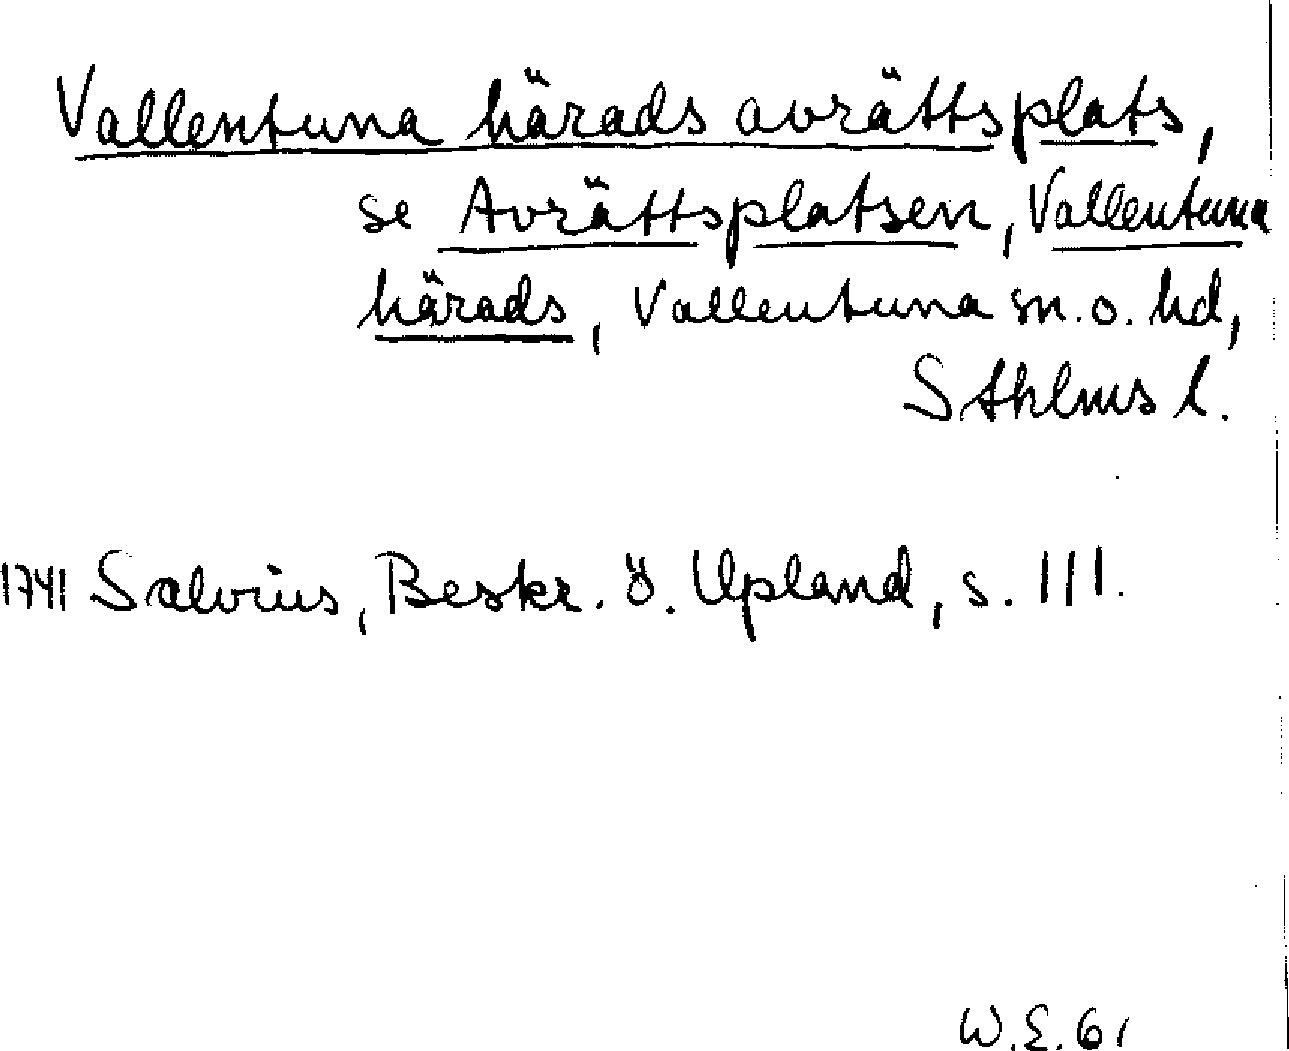 Vallentuna härads avrättsplats,
se Avrättsplatsen, Vallentuna
härads, Vallentuna sn. o. hd,
Sthlms l.
1741 Salvius, Beskr. ö. Upland, s. 111.
W.E. 61